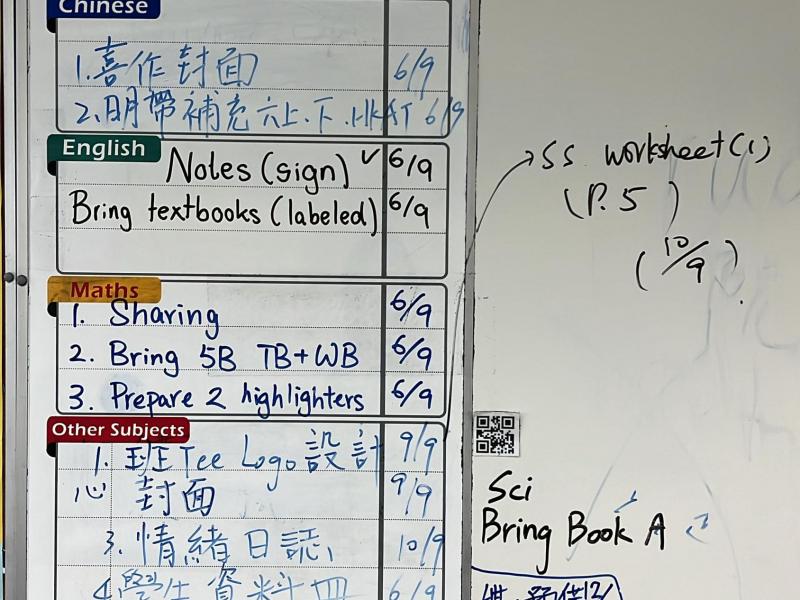 Chinese
1.喜作封面 6/9
2.明帶補充六上.下. 6/9
English
Notes (sign) ✓ 6/9
Bring textbooks (labeled) 6/9
Maths
1. Sharing 6/9
2. Bring 5B TB+WB 6/9
3. Prepare 2 highlighters 6/9
Other Subjects
1. 班Tee Logo設計 9/9
心 封面 9/9
3. 情緒日誌 10/9
4.學生資料冊 6/9
SS worksheet (1)
(P. 5)
(10/9)
Sci
Bring Book A